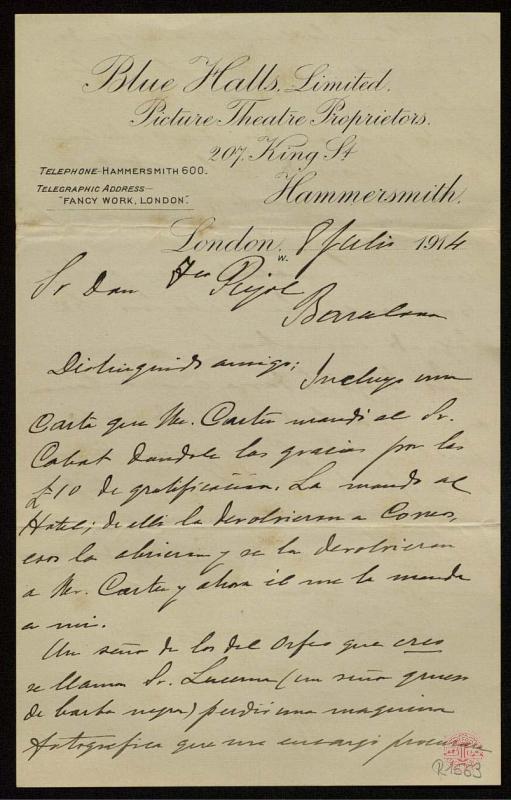 Blue Halls, Limited.
Picture Theatre Proprietors.
207, King St
TELEPHONE-HAMMERSMITH 600.
Hammersmith.
TELEGRAPHIC ADDRESS-
"FANCY WORK, LONDON."
London, W. 8 Julio 1914
Sr Don Fco Pujol
Barcelona
Distinguido amigo; Incluyo una
Carta que Mr. Carter mandó al Sr.
Cabot dandole las gracias por las
£10 de gratificacion. La mandó al
Hotel; de alli la devolvieron a Correos,
esos la abrieron y se la devolvieron
a Mr. Carter y ahora él me la manda
a mi.
Un señor de los del Orfeo que creo
se llama Sr. Lucerna (un señor grueso
de barba negra) perdió una maquina
fotografica que me encargó procurase
R.1563